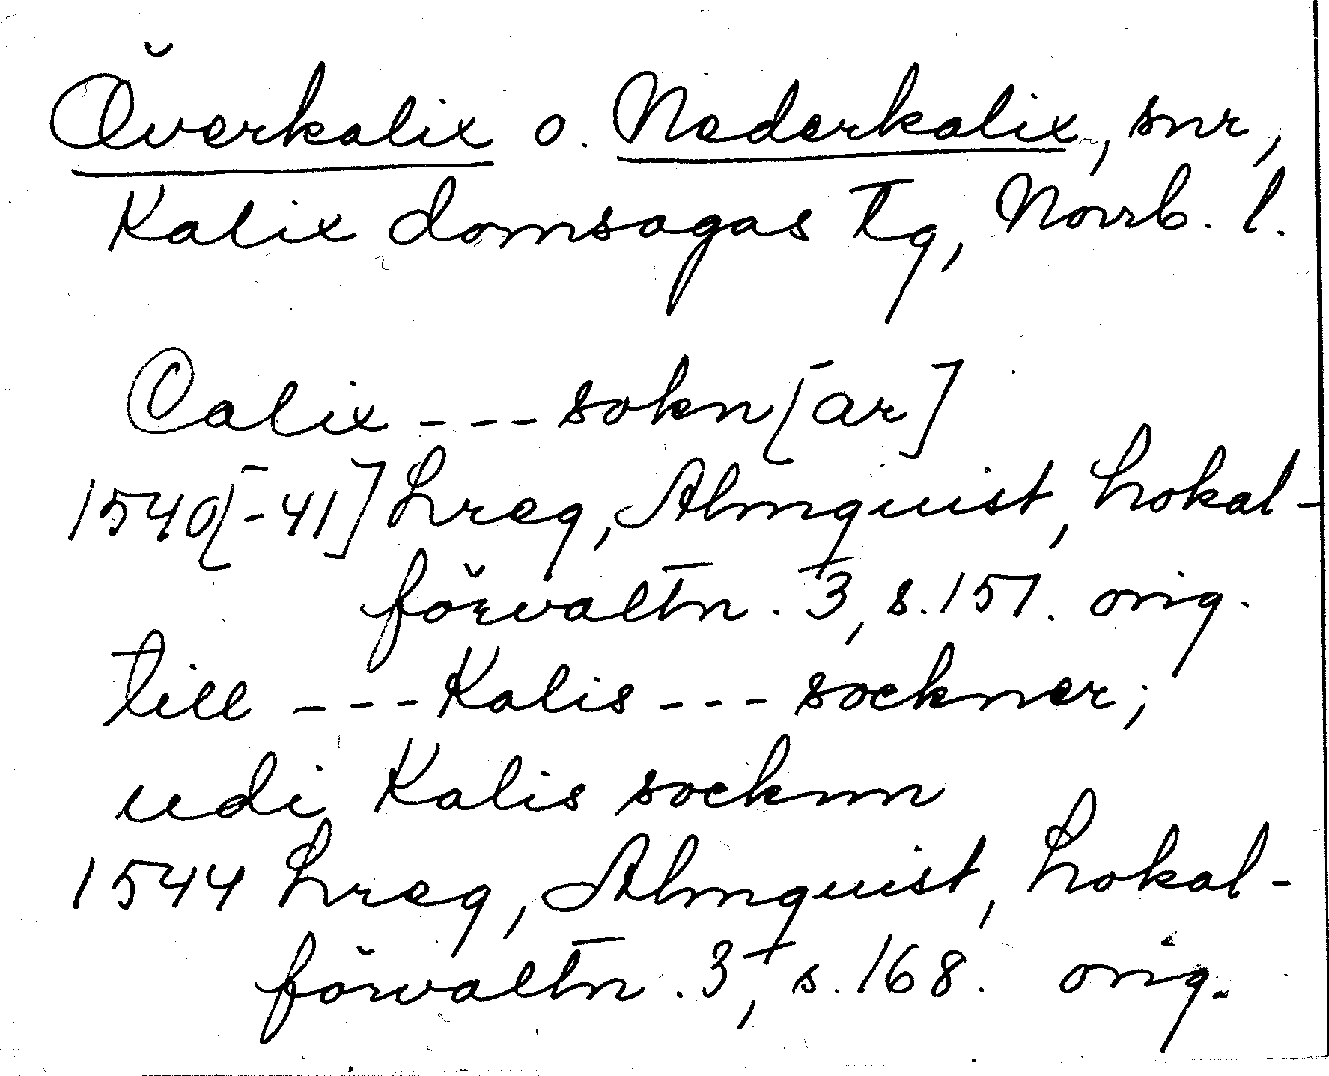 Överkalix o. Nederkalix, snr,
Kalix domsagas tg, Norrb. l.
Calix --- sokn[ar]
1540[-41] Lreg, Almquist, Lokal-
förvaltn. 3, s. 157. orig.
till --- Kalis --- sockner;
udi Kalis socknn
1544 Lreg, Almquist, Lokal-
förvaltn. 3, s. 168. orig.